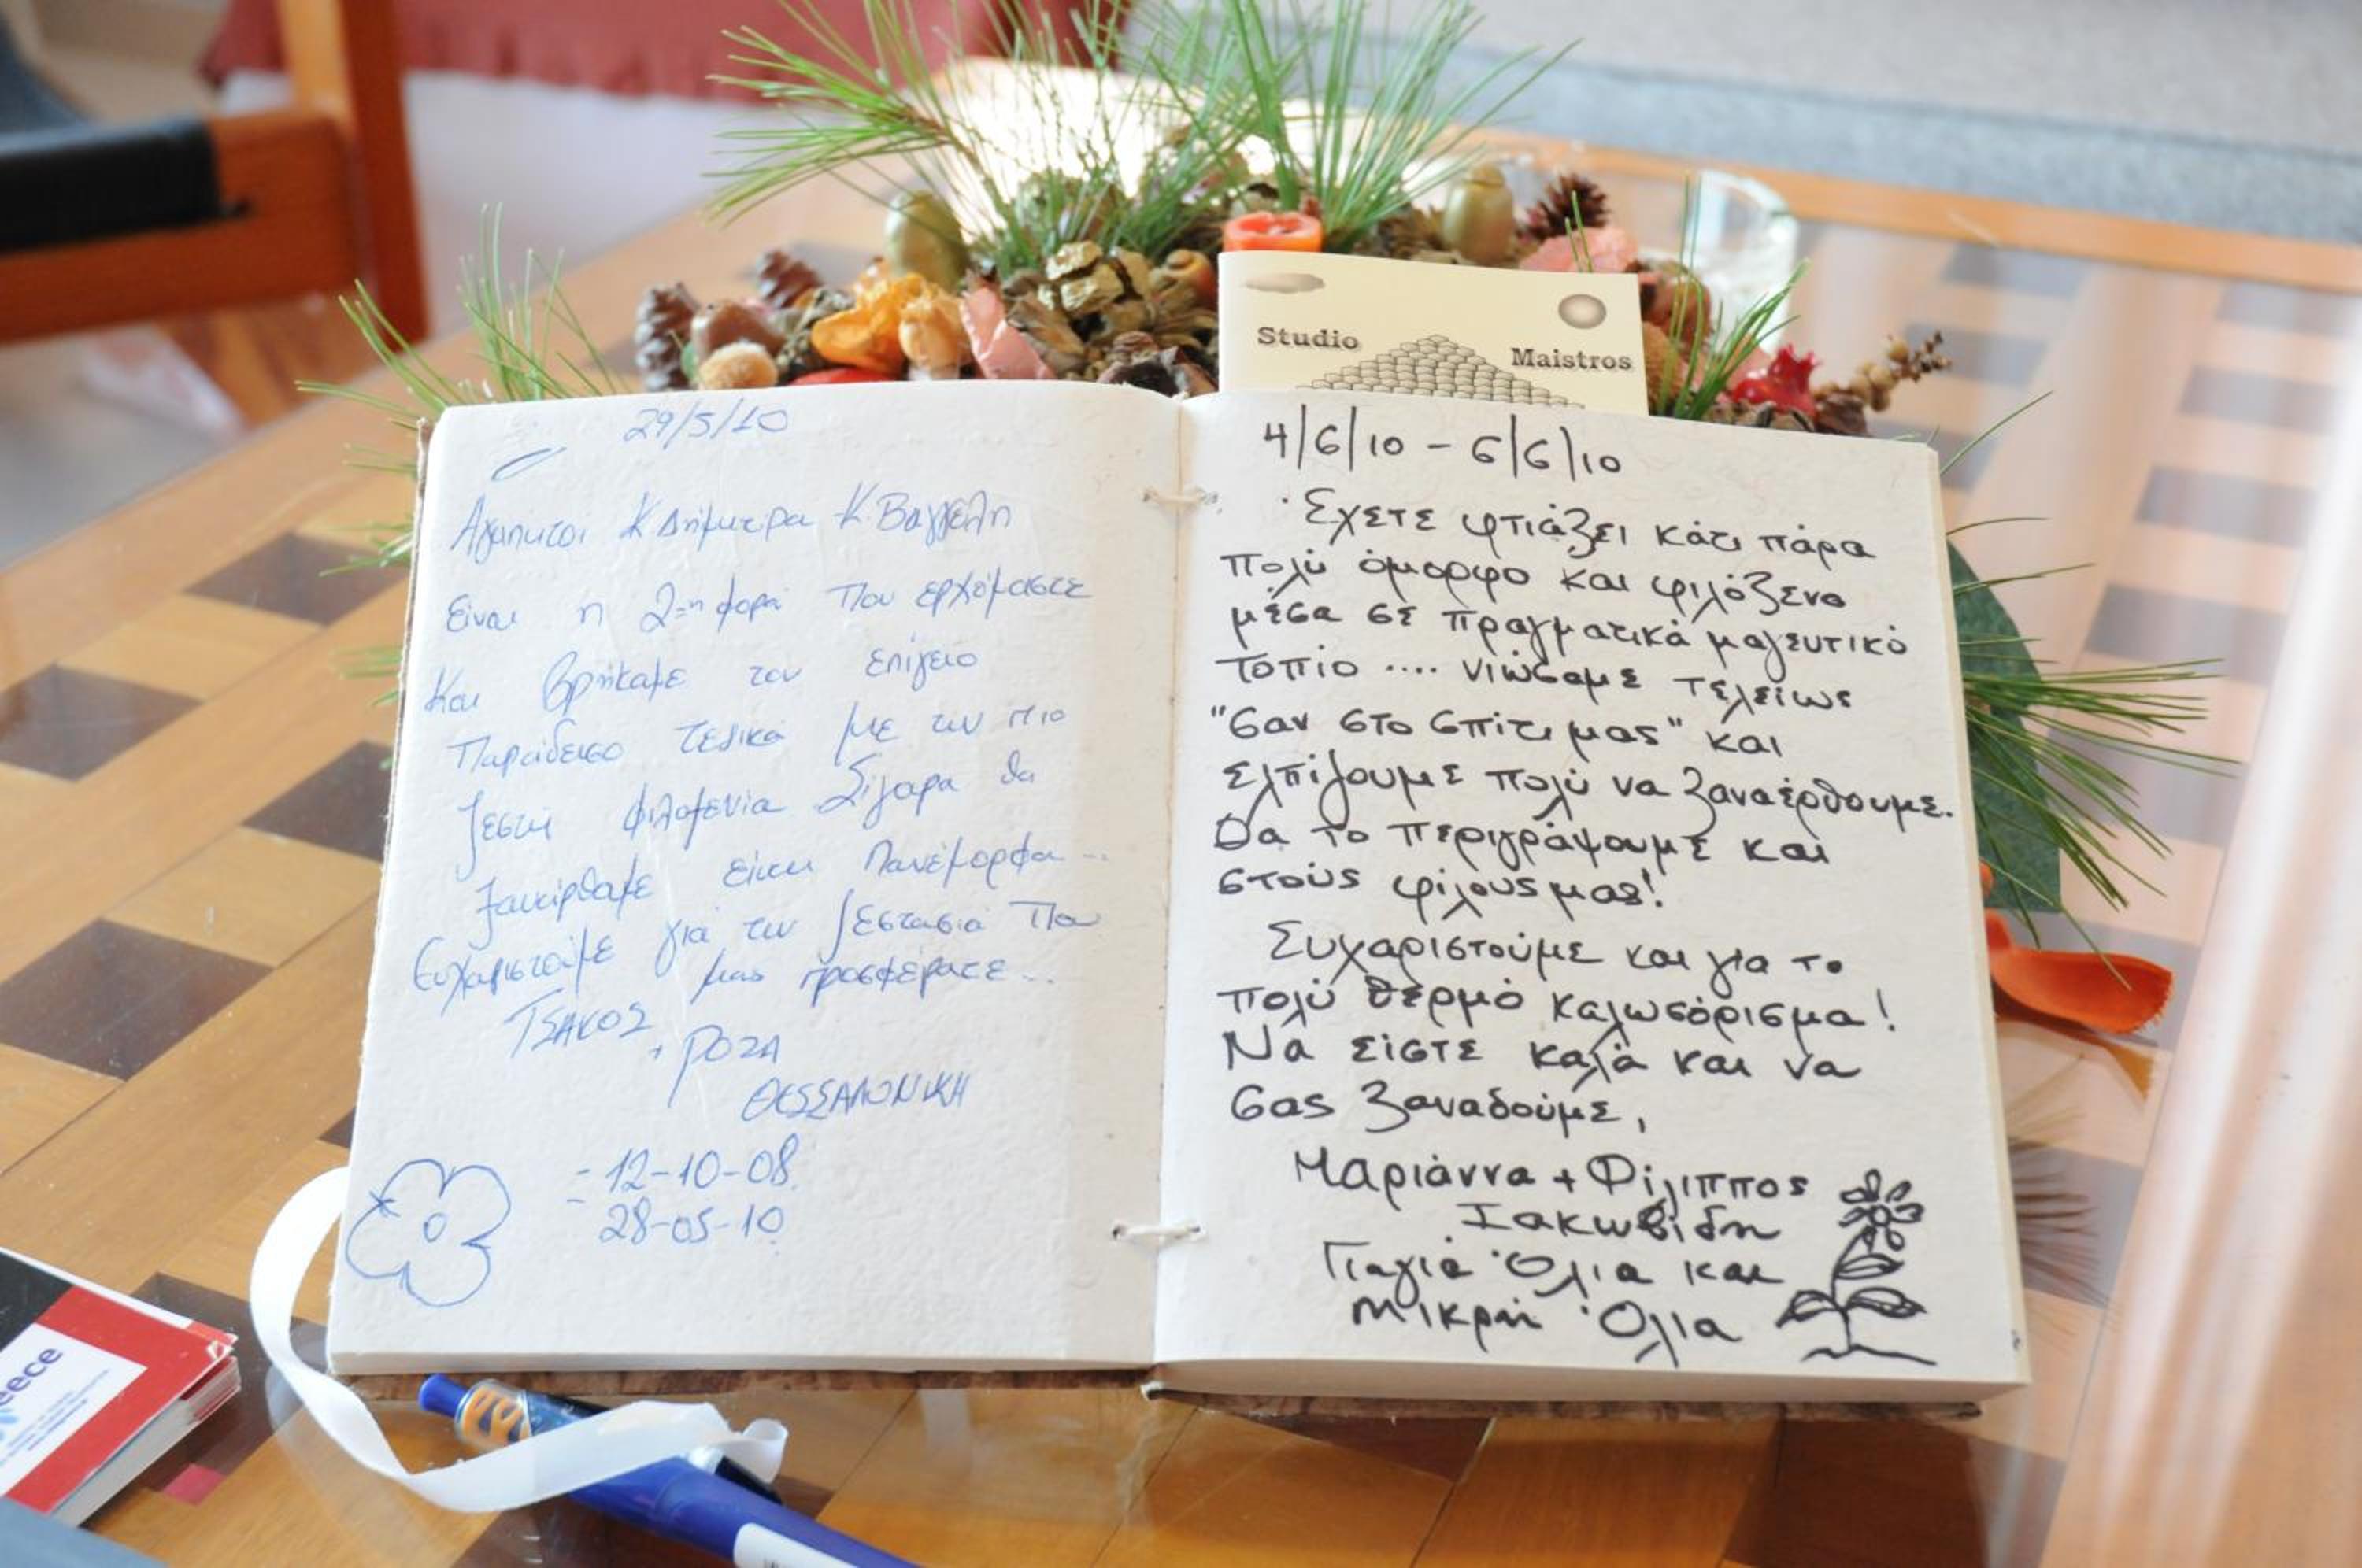 Studio
Maistros
29/5/10
Αγαπητοί Κ Δήμητρα Κ Βαγγέλη
Είναι η 2η φορά που ερχόμαστε
και βρήκαμε τον επίγειο
Παράδεισο τελικά με την πιο
ζεστή φιλοξενία Σίγουρα θα
ξαναέρθουμε είναι Πανέμορφα...
Ευχαριστούμε για την ζεστασιά που
μας προσφέρατε...
ΤΣΑΚΟΣ
+ ΡΟΖΑ
ΘΕΣΣΑΛΟΝΙΚΗ
= 12-10-08
28-05-10
4/6/10 - 6/6/10
Έχετε φτιάξει κάτι πάρα
πολύ όμορφο και φιλόξενο
μέσα σε πραγματικά μαγευτικό
τοπίο .... νιώσαμε τελείως
"σαν στο σπίτι μας" και
ελπίζουμε πολύ να ξαναέρθουμε.
Θα το περιγράψουμε και
στούς φίλους μας!
Ευχαριστούμε και για το
πολύ θερμό καλωσόρισμα!
Να είστε καλά και να
σας ξαναδούμε,
Μαριάννα + Φίλιππος
Ιακωβίδη
Γιαγιά Όλια και
μικρή Όλια
eece